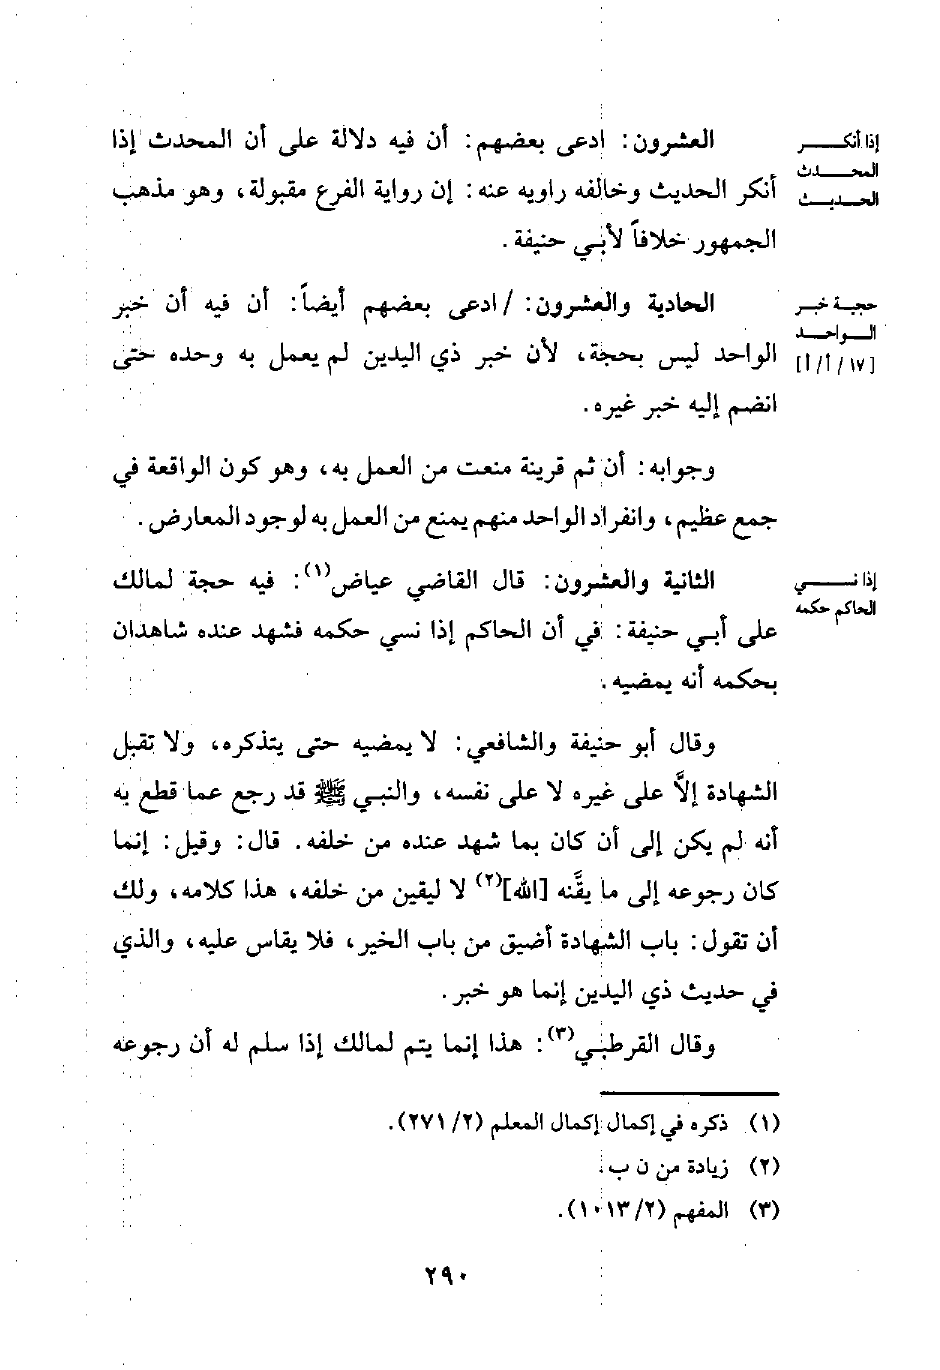 إذا أنكر
المحدث
الحديث
العشرون: ادعى بعضهم: أن فيه دلالة على أن المحدث إذا
أنكر الحديث وخالفه راويه عنه: إن رواية الفرع مقبولة، وهو مذهب
الجمهور خلافاً لأبي حنيفة.
حجية خبر
الواحد
[١٧/أ/أ]
الحادية والعشرون: /ادعى بعضهم أيضاً: أن فيه أن خبر
الواحد ليس بحجة، لأن خبر ذي اليدين لم يعمل به وحده حتى
انضم إليه خبر غيره.
وجوابه: أن ثم قرينة منعت من العمل به، وهو كون الواقعة في
جمع عظيم، وانفراد الواحد منهم يمنع من العمل به لوجود المعارض.
إذا نسي
الحاكم حكمه
الثانية والعشرون: قال القاضي عياض(١): فيه حجة لمالك
على أبي حنيفة: في أن الحاكم إذا نسي حكمه فشهد عنده شاهدان
بحكمه أنه يمضيه.
وقال أبو حنيفة والشافعي: لا يمضيه حتى يتذكره، ولا تقبل
الشهادة إلاَّ على غيره لا على نفسه، والنبي ﷺ قد رجع عما قطع به
أنه لم يكن إلى أن كان بما شهد عنده من خلفه. قال: وقيل: إنما
كان رجوعه إلى ما يقَّنه [الله](٢) لا ليقين من خلفه، هذا كلامه، ولك
أن تقول: باب الشهادة أضيق من باب الخير، فلا يقاس عليه، والذي
في حديث ذي اليدين إنما هو خبر.
وقال القرطبي(٣): هذا إنما يتم لمالك إذا سلم له أن رجوعه
(١) ذكره في إكمال إكمال المعلم (٢/ ٢٧١).
(٢) زيادة من ن ب.
(٣) المفهم (٢/ ١٠١٣).
٢٩٠